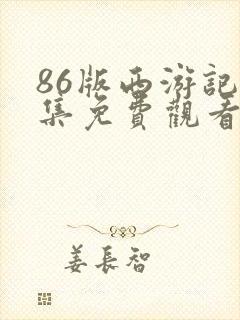 86版西游記
集免費觀看
姜長智